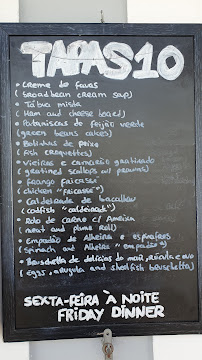 TAPAS 10
• Creme de favas
(broadbean cream sop)
• Tábua mista
(Ham and cheese board)
• Pataniscas de feijão verde
(green beans cakes)
• Bolinhos de peixe
(fish croquettes)
• Vieiras e camarão gratinado
(gratined scallops w/ prawns)
• Frango fricassé
chicken "fricassé")
• Caldeirada de bacalhau
(codfish "caldeirada")
• Rolo de carne c/ Ameixa
(meat and plume roll)
• Empadão de Alheira e espinafres
(Spinach and Alheira "empadão")
• Bruschetta de delícias do mar, rúcula e ovo
(eggs, arugula and shellfish bruschetta)
SEXTA-FEIRA À NOITE
FRIDAY DINNER